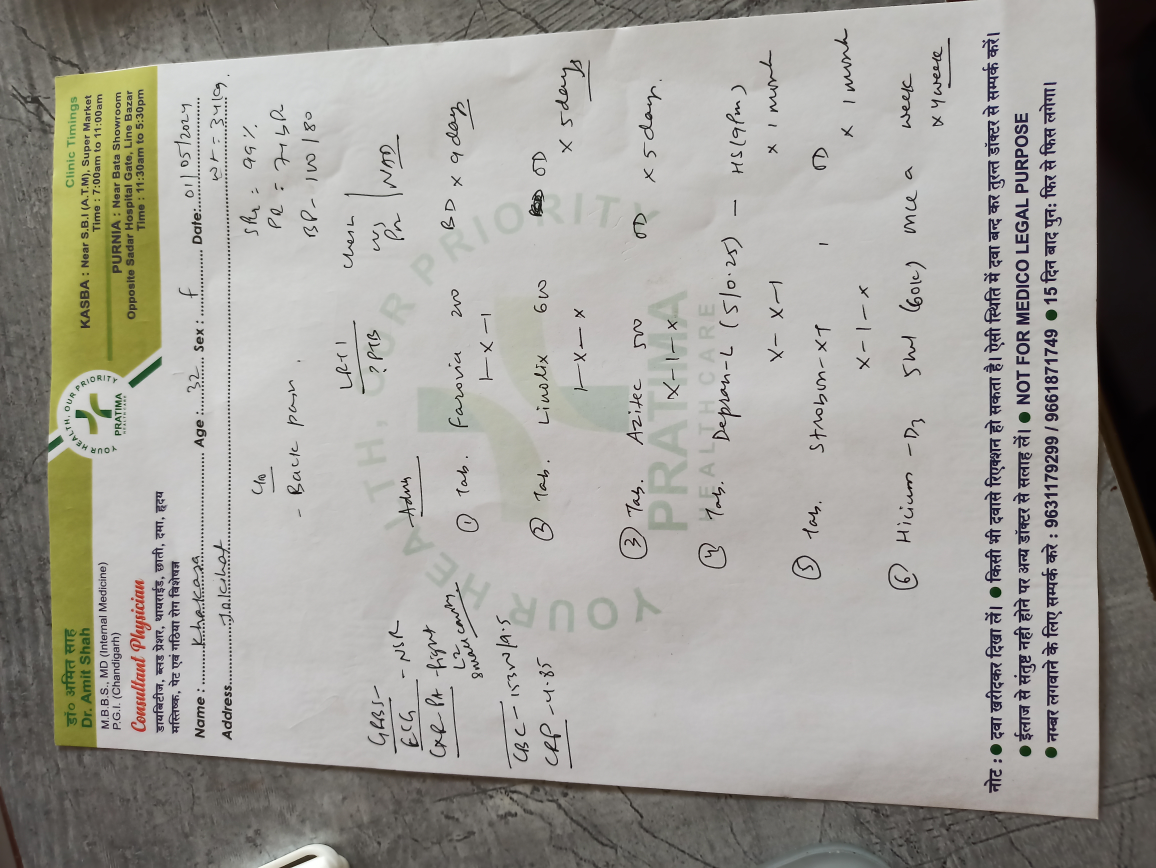 डॉ० अमित साह
Dr. Amit Shah
M.B.B.S., MD (Internal Medicine)
P.G.I. (Chandigarh)
Consultant Physician
डायबिटीज, ब्लड प्रेशर, थायराईड, छाती, दमा, हृदय
मस्तिष्क, पेट एवं गठिया रोग विशेषज्ञ
YOUR HEALTH, OUR PRIORITY
PRATIMA
Clinic Timings
KASBA : Near S.B.I (A.T.M), Super Market
Time : 7:00am to 11:00am
PURNIA : Near Bata Showroom
Opposite Sadar Hospital Gate, Line Bazar
Time : 11:30am to 5:30pm
Name : Age : 32 Sex : f Date: 01/05/2024
Address wt = 34 kg.
C/o
- Back pain.
SPO2 = 99%
PR = 74 bR
BP - 100/80
LRTI
? PTB
NAD
GRBS -
ECG - NSR
CXR-PA - Right
CBC - 15300/9.5
CRP - 4.85
Adv
① Tab. Farovia 200 BD x 9 days
1-x-1
② Tab. Linolix 600 OD x 5 days
1-x-x
③ Tab. Azitec 500 OD x 5 days
x-1-x
④ Tab. Depran-L (5/0.25) - HS (9Pm)
x-x-1 x 1 month
⑤ Tab. Strobon-XT 1 OD
x-1-x x 1 month
⑥ Hicium-D3 5ml (60k) once a week
x 4 week
YOUR HEALTH, OUR PRIORITY
PRATIMA
HEALTHCARE
नोट : ● दवा खरीदकर दिखा लें। ● किसी भी दवासे रिएक्शन हो सकता है। ऐसी स्थिति में दवा बन्द कर तुरन्त डॉक्टर से सम्पर्क करें।
● ईलाज से संतुष्ट नही होने पर अन्य डॉक्टर से सलाह लें। ● NOT FOR MEDICO LEGAL PURPOSE
● नम्बर लगवाने के लिए सम्पर्क करे : 9631179299 / 9661871749 ● 15 दिन बाद पुन: फिर से फिस लगेगा।